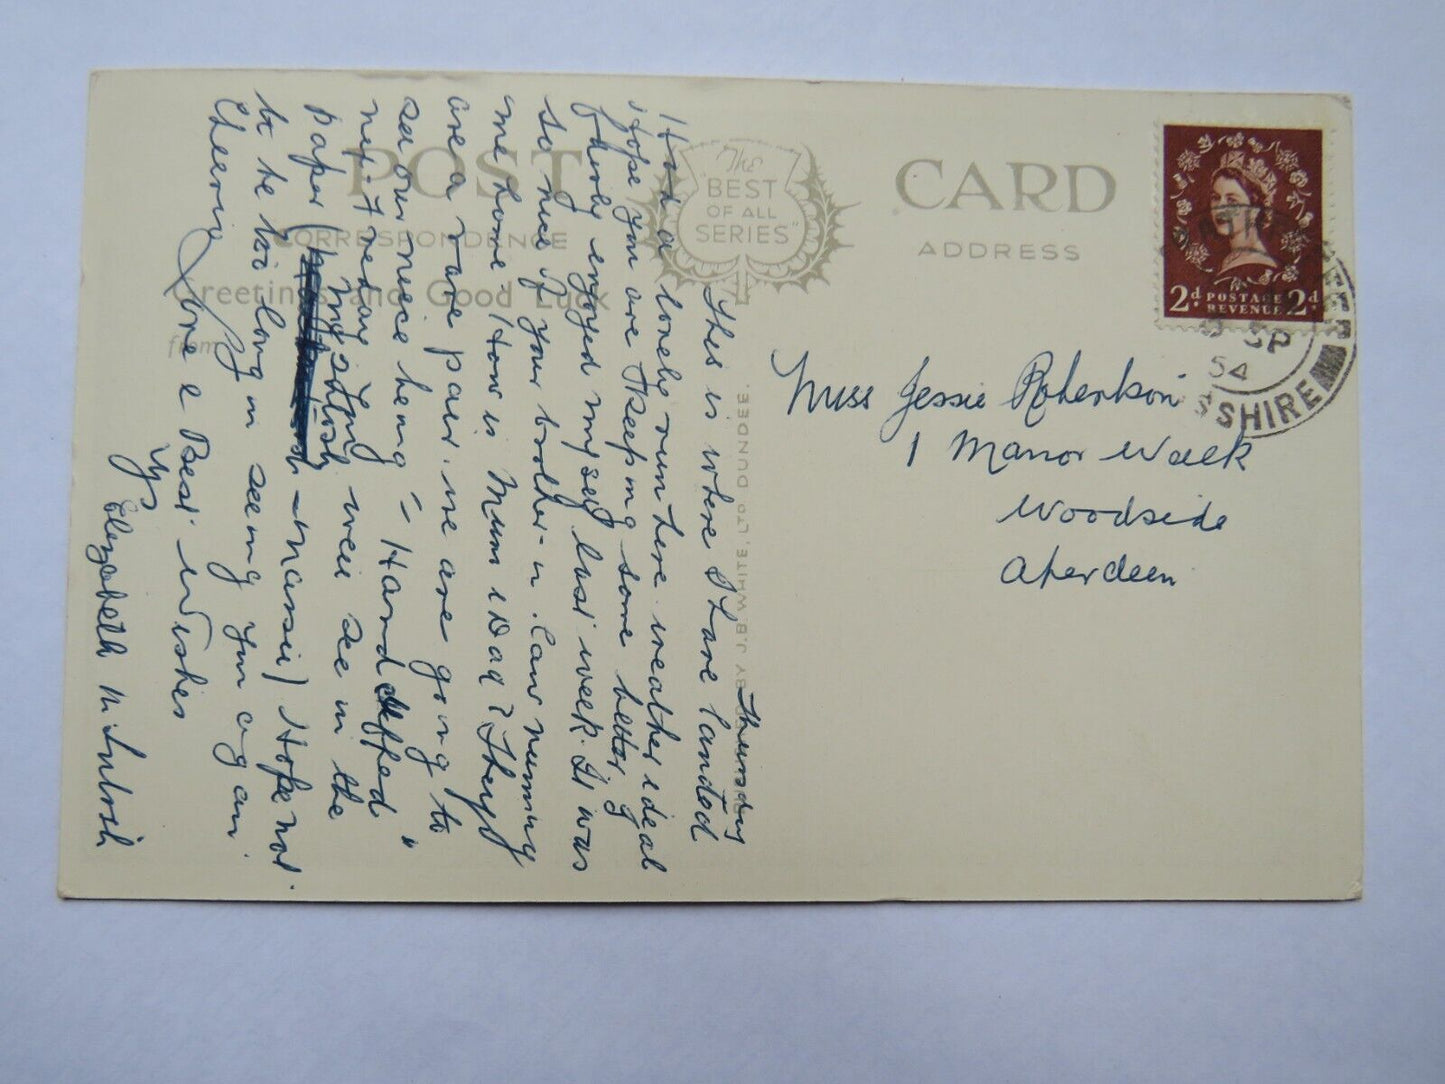 POST CARD
The
"BEST
OF ALL
SERIES"
CORRESPONDENCE
ADDRESS
Greetings and Good Luck
from
BY J.B. WHITE, LTD DUNDEE.
2d POSTAGE 2d
REVENUE
SP
54
SSHIRE
Miss Jessie Robertson
1 Manor Walk
Woodside
Aberdeen
Thursday
This is where I have landed
Had a lovely run here weather ideal
Hope you are keeping some better I
fairly enjoyed myself last week. It was
so nice of your brother-in-law running
me home. How is Mum & Dad? They
are a rare pair. We are going to
see our niece being "Handcuffed"
next Friday. You will see in the
paper (McIntosh - Massie) Hope not
to be too long in seeing you again.
Cheerio, Love & Best Wishes
Elizabeth McIntosh